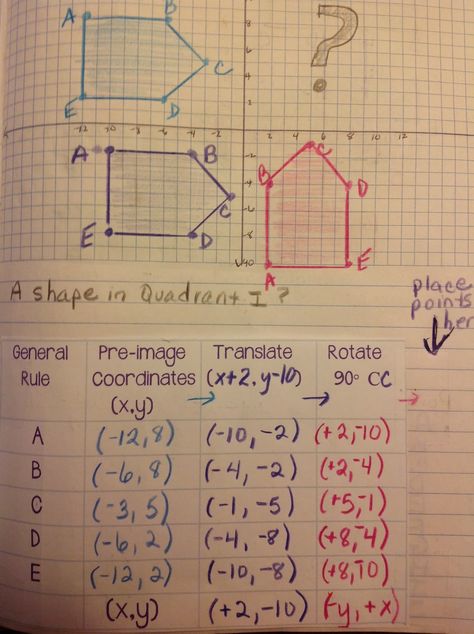 A B ?
C
E D
-12 -10 -6 -4 -2 2 4 6 8 10 12
A B C
B D
C
E D
A E
A shape in Quadrant I?
place
points
her
General Pre-image Translate Rotate
Rule Coordinates (x+2, y-10) 90° CC
(x,y)
A (-12, 8) (-10, -2) (+2, -10)
B (-6, 8) (-4, -2) (+2, -4)
C (-3, 5) (-1, -5) (+5, -1)
D (-6, 2) (-4, -8) (+8, -4)
E (-12, 2) (-10, -8) (+8, -10)
(x,y) (+2, -10) (-y, +x)